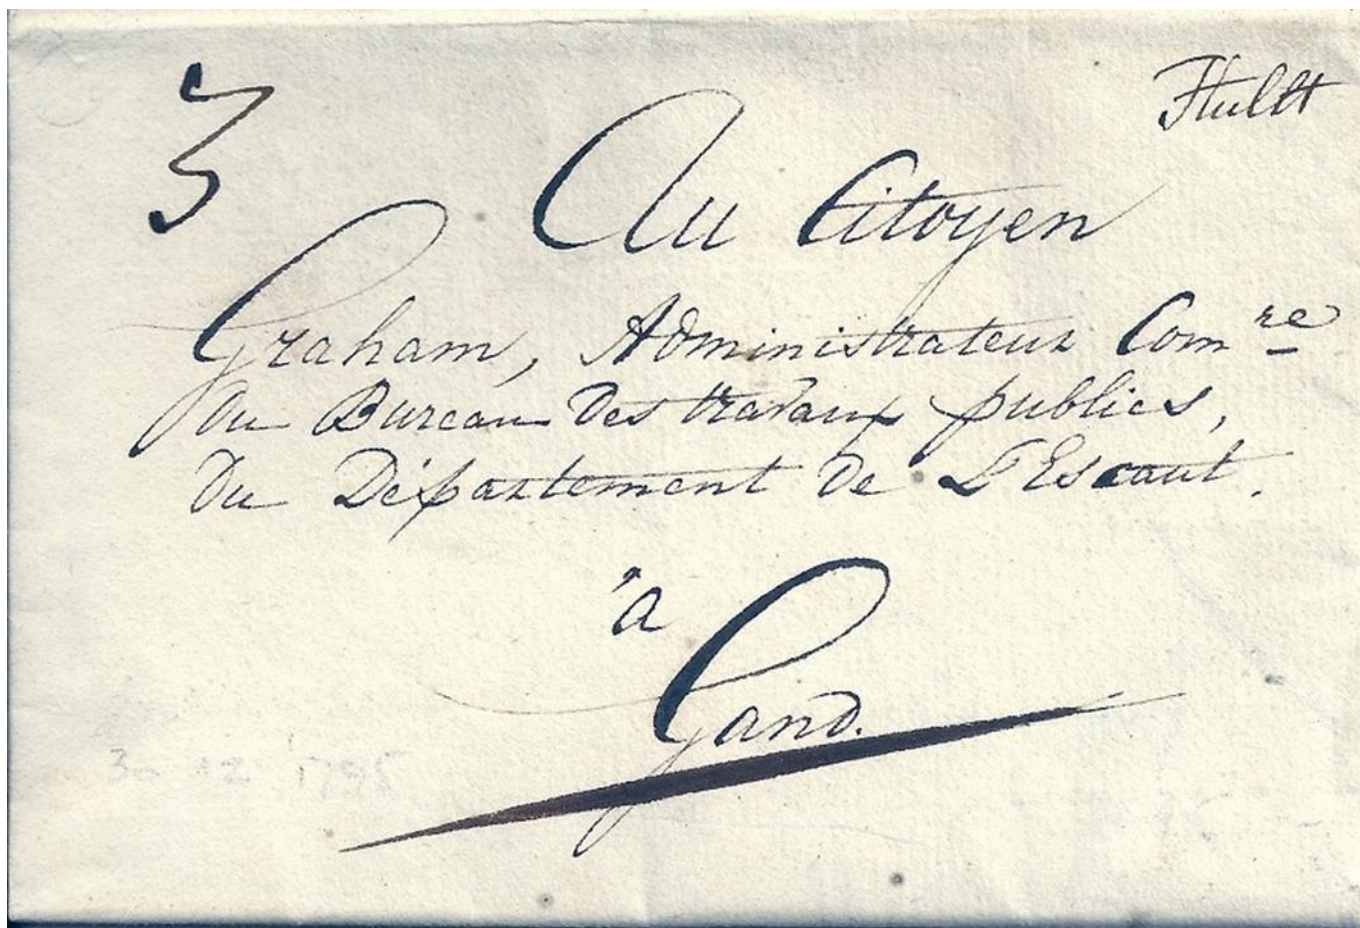 3
Hulst
Au Citoyen
Graham, Administrateur Comre
du Bureau des travaux publics,
du Département de L'Escaut.
à
Gand.
30 12 1795